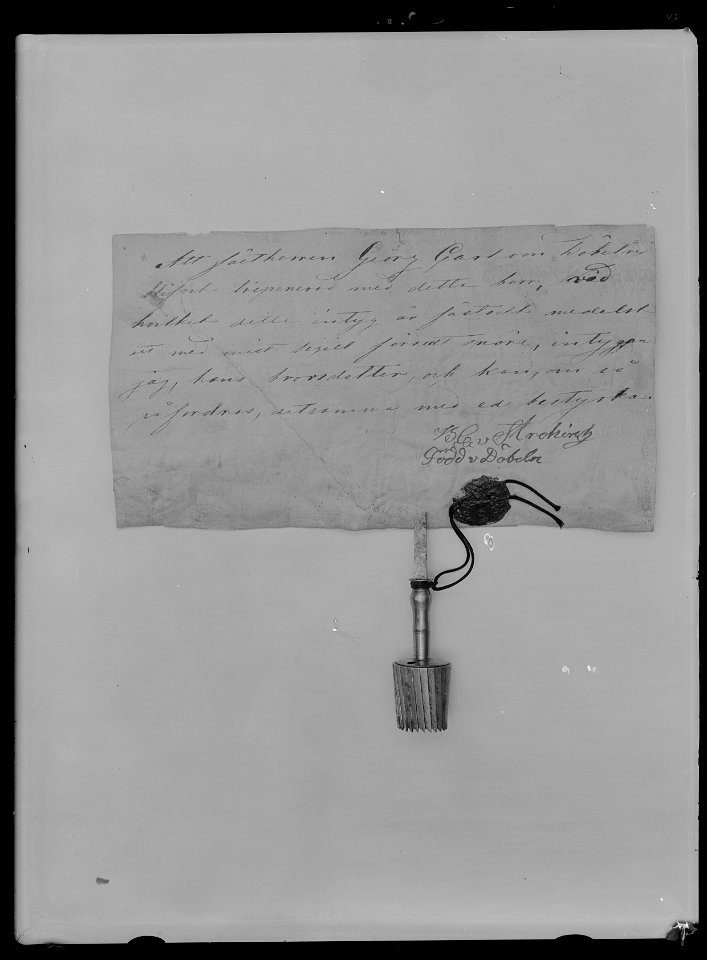 Att fältherren Georg Carl von Döbeln
blifvit trepanerad med detta
hvilket detta intyg är fästadt medelst
ett med mitt sigill försedt snöre, intygar
jag, hans brorsdotter, och kan, om så
påfordras, detsamma med ed bestyrka.
Född v Döbeln